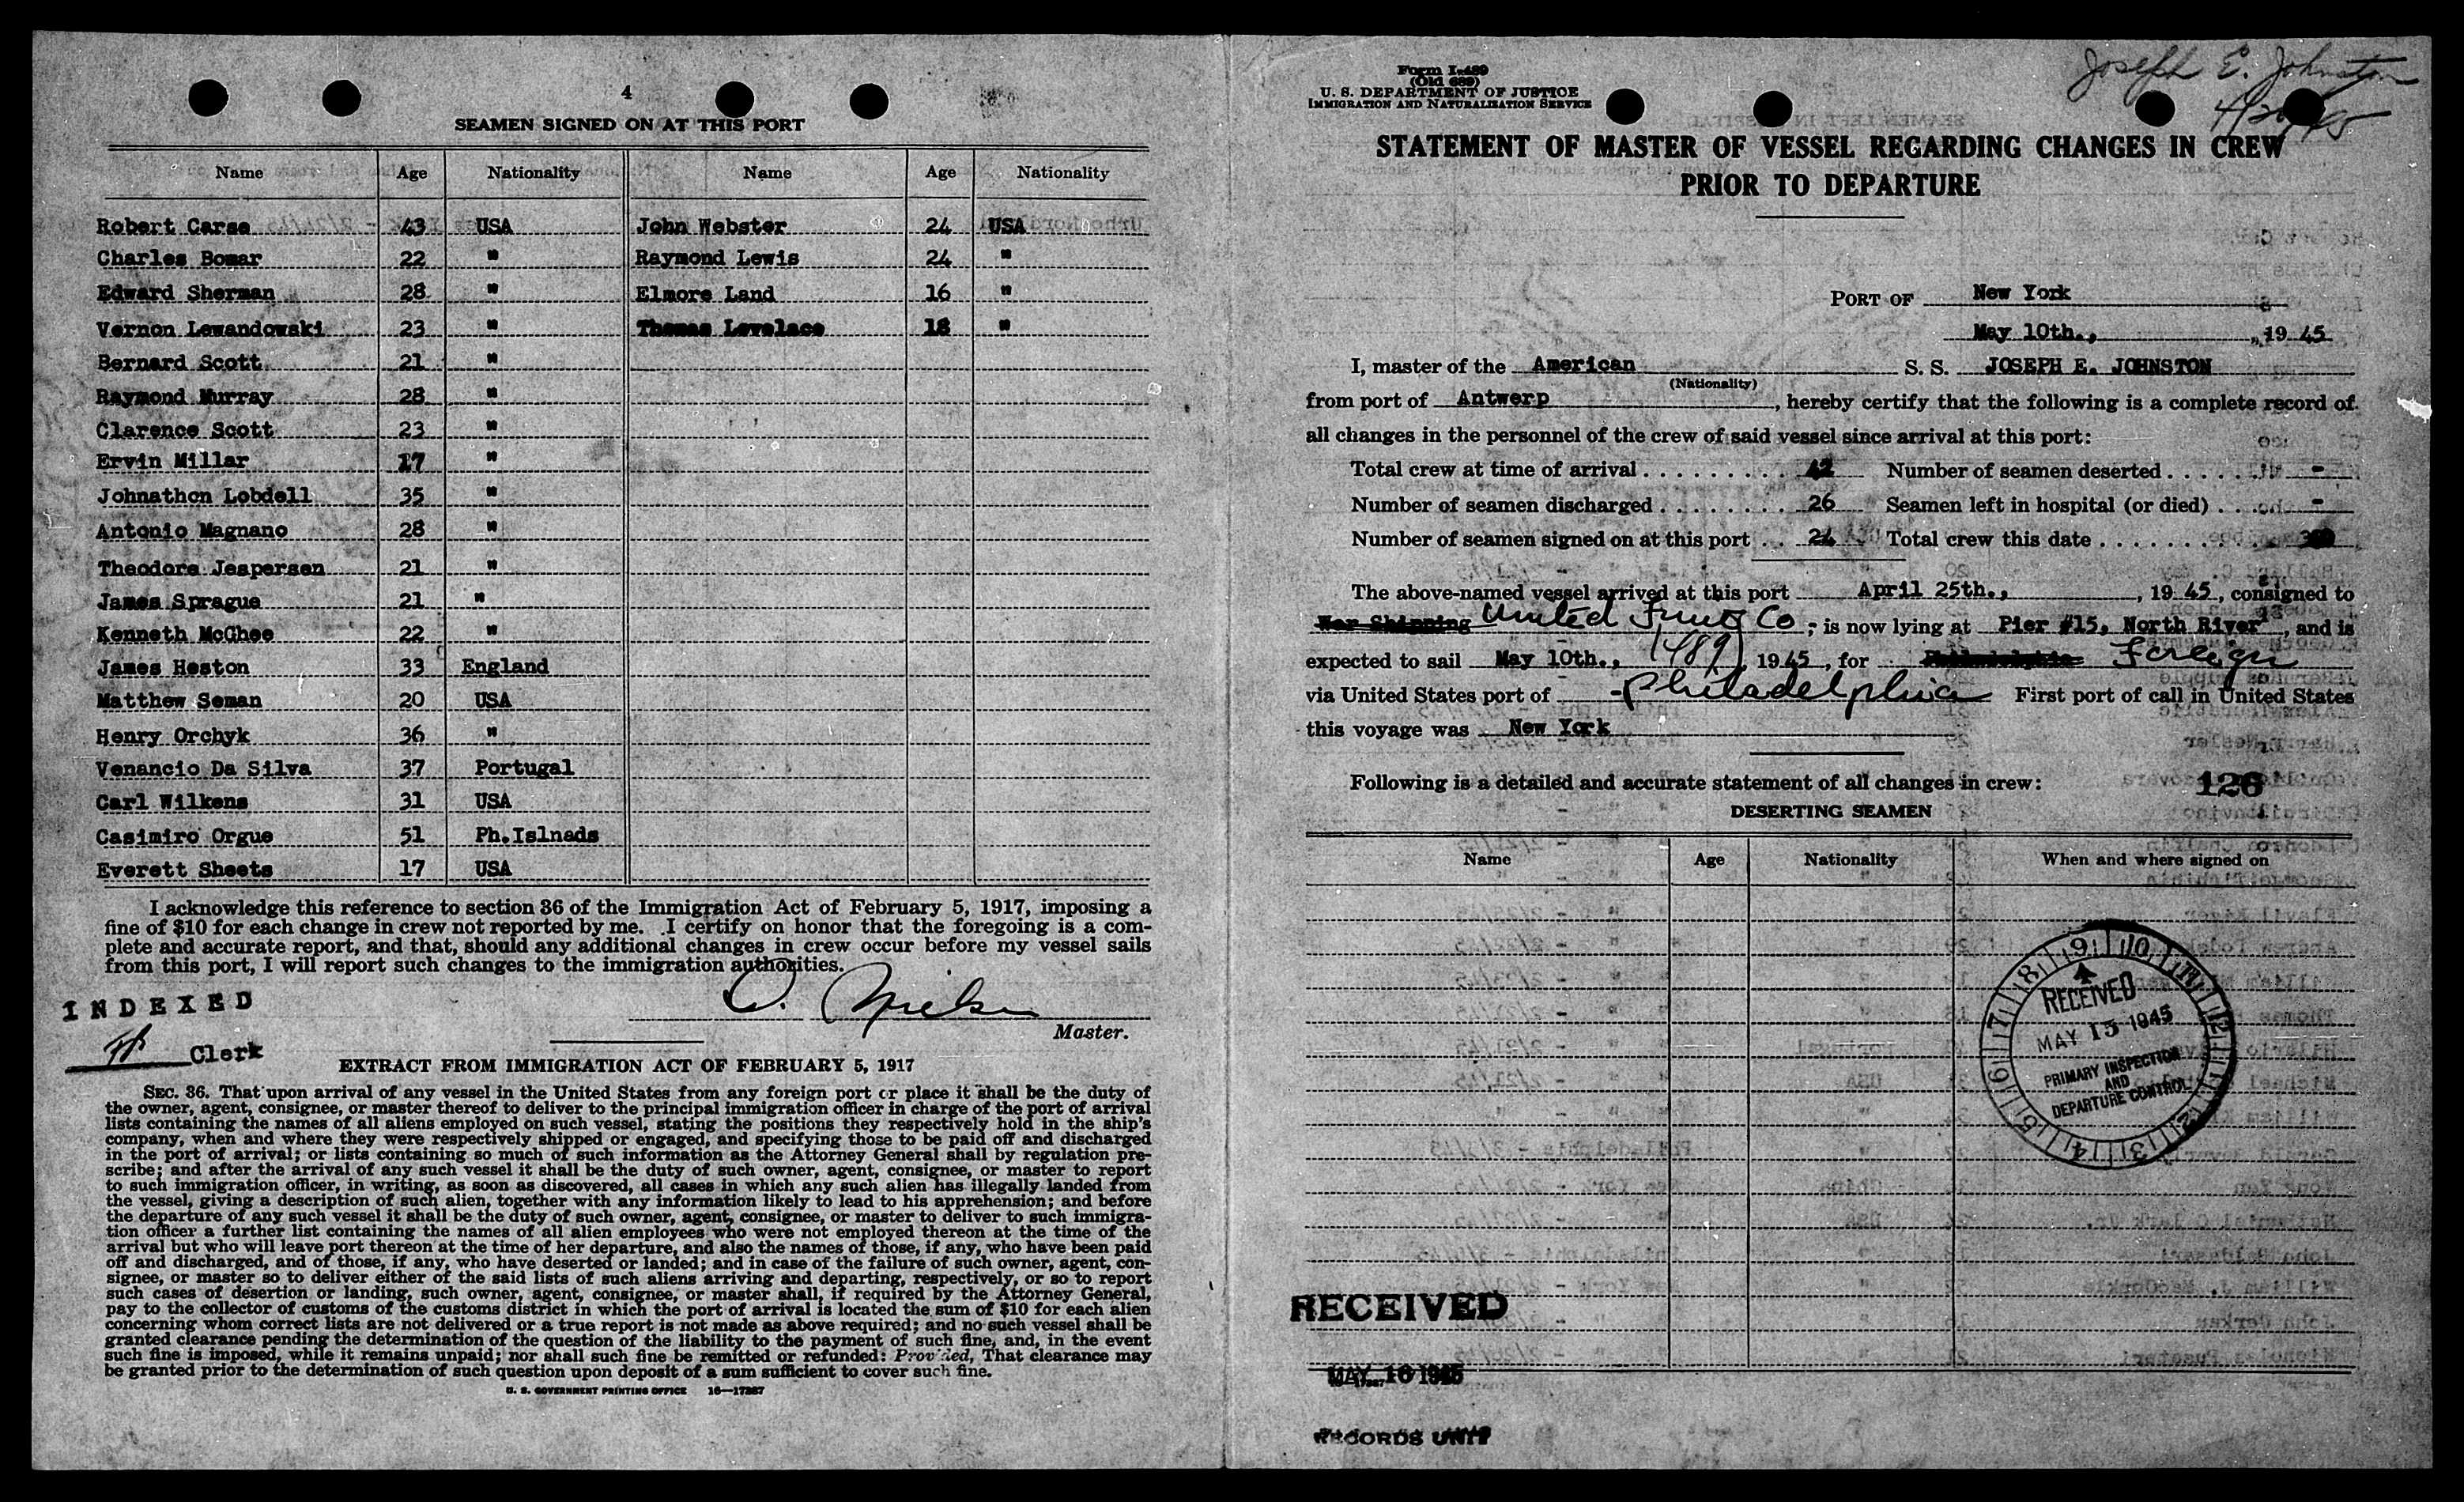 4
SEAMEN SIGNED ON AT THIS PORT
Name Age Nationality Name Age Nationality
Robert Carse 43 USA John Webster 24 USA
Charles Bomar 22 " Raymond Lewis 24 "
Edward Sherman 28 " Elmore Land 16 "
Vernon Lewandowski 23 " Thomas Lovelace 18 "
Bernard Scott 21 "
Raymond Murray 28 "
Clarence Scott 23 "
Ervin Millar 17 "
Johnathon Lobdell 35 "
Antonio Magnano 28 "
Theodore Jespersen 21 "
James Sprague 21 "
Kenneth McGhee 22 "
James Heston 33 England
Matthew Seman 20 USA
Henry Orchyk 36 "
Venancio Da Silva 37 Portugal
Carl Wilkens 31 USA
Casimiro Orgue 51 Ph.Islnads
Everett Sheets 17 USA
I acknowledge this reference to section 36 of the Immigration Act of February 5, 1917, imposing a
fine of $10 for each change in crew not reported by me. I certify on honor that the foregoing is a com-
plete and accurate report, and that, should any additional changes in crew occur before my vessel sails
from this port, I will report such changes to the immigration authorities.
INDEXED
Master.
Clerk
EXTRACT FROM IMMIGRATION ACT OF FEBRUARY 5, 1917
SEC. 36. That upon arrival of any vessel in the United States from any foreign port or place it shall be the duty of
the owner, agent, consignee, or master thereof to deliver to the principal immigration officer in charge of the port of arrival
lists containing the names of all aliens employed on such vessel, stating the positions they respectively hold in the ship's
company, when and where they were respectively shipped or engaged, and specifying those to be paid off and discharged
in the port of arrival; or lists containing so much of such information as the Attorney General shall by regulation pre-
scribe; and after the arrival of any such vessel it shall be the duty of such owner, agent, consignee, or master to report
to such immigration officer, in writing, as soon as discovered, all cases in which any such alien has illegally landed from
the vessel, giving a description of such alien, together with any information likely to lead to his apprehension; and before
the departure of any such vessel it shall be the duty of such owner, agent, consignee, or master to deliver to such immigra-
tion officer a further list containing the names of all alien employees who were not employed thereon at the time of the
arrival but who will leave port thereon at the time of her departure, and also the names of those, if any, who have been paid
off and discharged, and of those, if any, who have deserted or landed; and in case of the failure of such owner, agent, con-
signee, or master so to deliver either of the said lists of such aliens arriving and departing, respectively, or so to report
such cases of desertion or landing, such owner, agent, consignee, or master shall, if required by the Attorney General,
pay to the collector of customs of the customs district in which the port of arrival is located the sum of $10 for each alien
concerning whom correct lists are not delivered or a true report is not made as above required; and no such vessel shall be
granted clearance pending the determination of the question of the liability to the payment of such fine, and, in the event
such fine is imposed, while it remains unpaid; nor shall such fine be remitted or refunded: Provided, That clearance may
be granted prior to the determination of such question upon deposit of a sum sufficient to cover such fine.
U. S. GOVERNMENT PRINTING OFFICE 16—17287
Joseph E. Johnston
Form I-489
(Old 689)
U. S. DEPARTMENT OF JUSTICE
IMMIGRATION AND NATURALIZATION SERVICE
STATEMENT OF MASTER OF VESSEL REGARDING CHANGES IN CREW
PRIOR TO DEPARTURE
PORT OF New York
May 10th., , 19 45
I, master of the American S. S. JOSEPH E. JOHNSTON
(Nationality)
from port of Antwerp , hereby certify that the following is a complete record of
all changes in the personnel of the crew of said vessel since arrival at this port:
Total crew at time of arrival 42 Number of seamen deserted -
Number of seamen discharged 26 Seamen left in hospital (or died) -
Number of seamen signed on at this port 24 Total crew this date
The above-named vessel arrived at this port April 25th., , 19 45, consigned to
War Shipping United Fruit Co ; is now lying at Pier #15, North River , and is
expected to sail May 10th., (489) , 1945, for Philadelphia Foreign
via United States port of -Philadelphia First port of call in United States
this voyage was New York
Following is a detailed and accurate statement of all changes in crew: 126
DESERTING SEAMEN
Name Age Nationality When and where signed on
9 10 11 12 1 2 3 4 5 6 7 8
RECEIVED
MAY 15 1945
PRIMARY INSPECTION
AND
DEPARTURE CONTROL
RECEIVED
MAY 16 1945
RECORDS UNIT